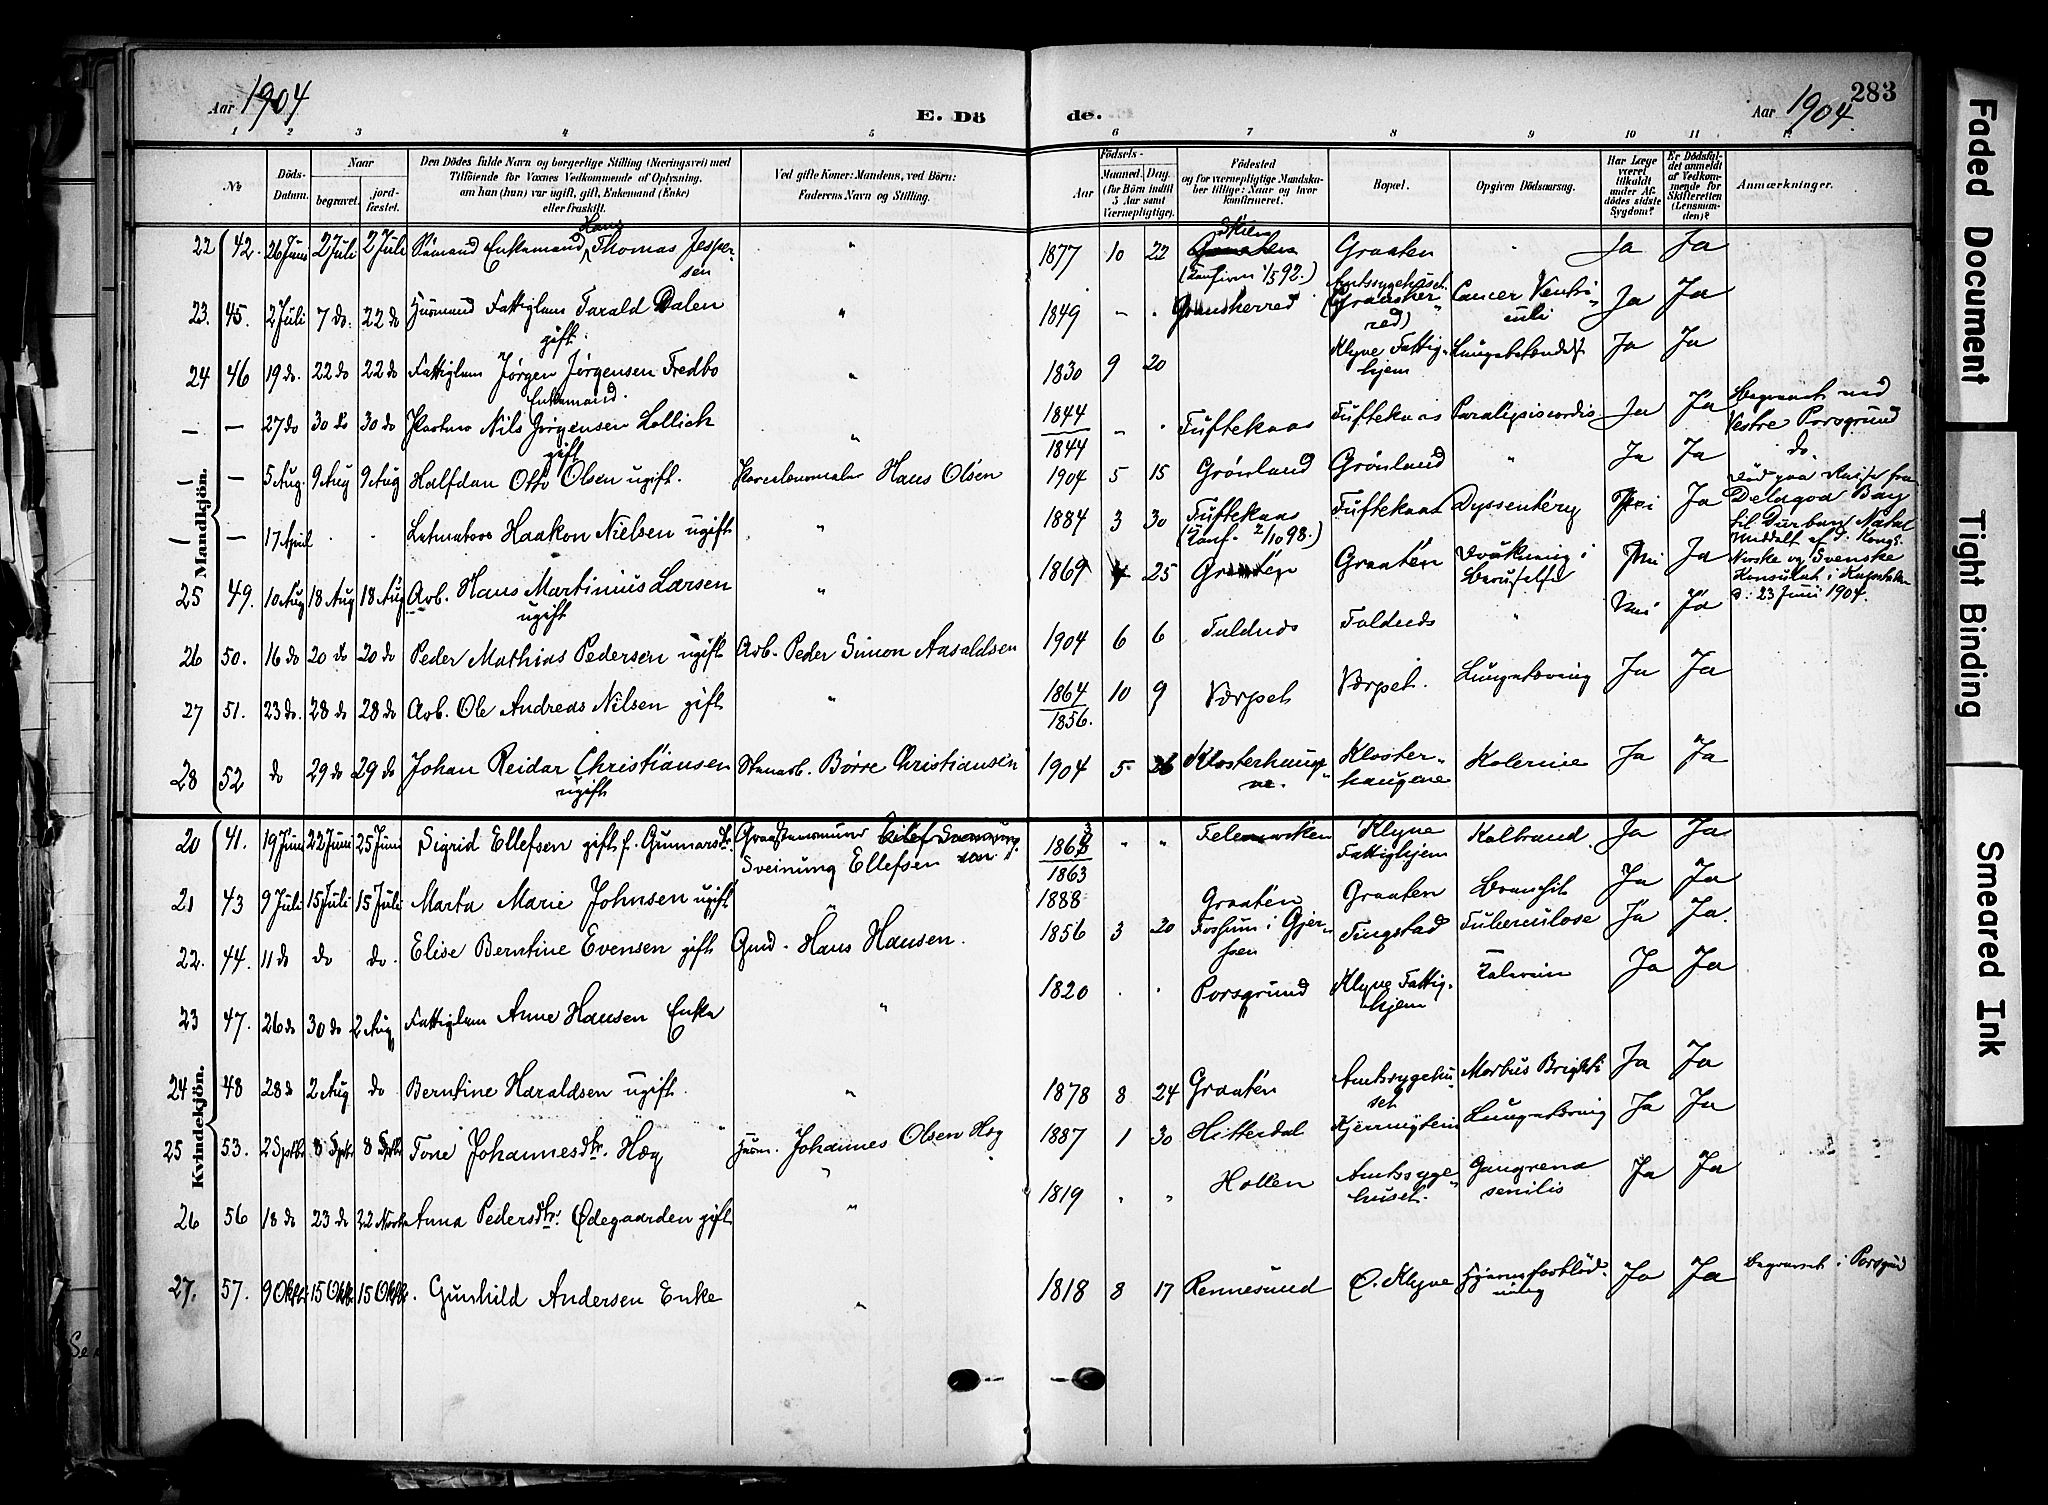 Aar 1904
E. Dö
de.
Aar 1904.
283
1 2 3 4 5 6 7 8 9 10 11 12
№
Döds-Datum.
Naar
begravet.
jord-fæstet.
Den Dödes fulde Navn og borgerlige Stilling (Næringsvei) med
Tilföiende for Voxnes Vedkommende af Oplysning,
om han (hun) var ugift, gift, Enkemand (Enke)
eller fraskilt.
Ved gifte Koner: Mandens, ved Börn:
Faderens Navn og Stilling.
Födsels-
Aar
Maaned. Dag.
(for Börn indtil
5 Aar samt
Værnepligtige).
Födested
og for værnepligtige Mandska-
ber tillige: Naar og hvor
konfirmeret.
Bopæl.
Opgiven Dödsaarsag.
Har Læge
været
tilkaldt
under Af-
dödes sidste
Sygdom?
Er Dödsfal-
det anmeldt
af Vedkom-
mende for
Skifteretten
(Lensman-
den)?
Anmærkninger.
Mandkjön.
22 42. 26 Juni 2 Juli 2 Juli Sömand Enkemand Hans Thomas Jesper-
sen " 1877 10 22 Skien (Konfirm 1/5 92.) Graaten " Ja Ja
23. 45. 2 Juli 7 do. 22 do Husmand Fattiglem Tarald Dalen
gift. " 1849 - . Gransherred Amtssygehuset (Gransher-
red) Cancer Ventri-
culi Ja Ja
24 46 19 do. 22 do 22 do Fattiglem Jørgen Jørgensen Fredbo
Enkemand. " 1830 9 20 Klyve Fattig-
hjem Lungebetændelse Ja Ja
— — 27 do 30 do 30 do Nils Jørgensen Lollick
gift " 1844
1844 - . Tuftekaas Tuftekaas Paralysis cordis Ja Ja Begravet ved
Vestre Porsgrund
— — 5 Aug. 9 Aug 9 Aug Halfdan Otto Olsen ugift. Porcelænsmaler Hans Olsen 1904 5 15 Grönland Grönland " Ja Ja do.
— — 17 April . . Letmatros Haakon Nielsen ugift " 1884 3 30 Tuftekaas
(Konf. 2/10 98.) Tuftekaas Dyssentery Nei Ja Död paa Reise fra
Delagoa Bay
til Durban Natal
Meddelt af d. Kongl.
Norske og Svenske
Konsulat i Kapstaden
d. 23 Juni 1904.
25 49. 10 Aug 18 Aug 18 Aug Arb. Hans Martinius Larsen
ugift " 1869 4 25 Graaten Graaten Drukning i
Nei Ja
26 50. 16 do 20 do 20 do Peder Mathias Pedersen ugift Arb. Peder Simon Aasoldsen 1904 6 6 Faldnes Faldnes " Nei Ja
27 51. 23 do. 28 do 28 do Arb. Ole Andreas Nilsen gift " 1864
1856. 10 9 Værpet Værpet. Lungetæring Ja Ja
28 52 do 29 do 29 do Johan Reidar Christiansen
ugift Stenarb. Börre Christiansen 1904 5 26 Klosterhauge-
ne. Kloster-
haugene Kolerine Ja Ja
Kvindekjön.
20 41. 19 Juni 22 Juni 25 Juni Sigrid Ellefsen gift f. Gunnarsdtr.
Sveinung Ellefsen 1863
1863 " " Telemarken Klyve
Fattighjem Kolbrand. Ja Ja
21 43 9 Juli 15 Juli 15 Juli Marta Marie Johnsen ugift " 1888 Graaten Graaten Bronchit Ja Ja
22. 44. 11 do do do. Elise Berntine Evensen gift Gmd. Hans Hansen. 1856 3 20 Fossum i Gjer-
pen Tingstad Tuberculose Ja Ja.
23 47. 26 do 30 do 2 Aug Fattiglem Anne Hansen Enke " 1820 . . Porsgrund Klyve Fattig-
hjem Kolerine Ja Ja
24 48 28 do 2 Aug do Berntine Haraldsen ugift. " 1878 8 24 Graaten Amtssygehu-
set Morbus Brighti Ja Ja
25 53. 2 Septbr 8 Septbr 8 Septbr Tone Johannesdtr. Hæg Husm. Johannes Olsen Hæg 1887 1 30 Hitterdal Lungetæring Ja Ja
26 56 18 do 23 do 22 Anna Pedersdtr. Ødegaarden gift " 1819 " " Hollen Amtssyge-
huset. Gangrena
senilis Ja Ja
27. 57. 9 Oktbr 15 Oktbr 15 Oktbr. Gunhild Andersen Enke " 1818 8 17 Rennesund Ø. Klyve Hjerneforblöd-
ning Ja Ja begravet i Porsgrund
Faded Document
Tight Binding
Smeared Ink